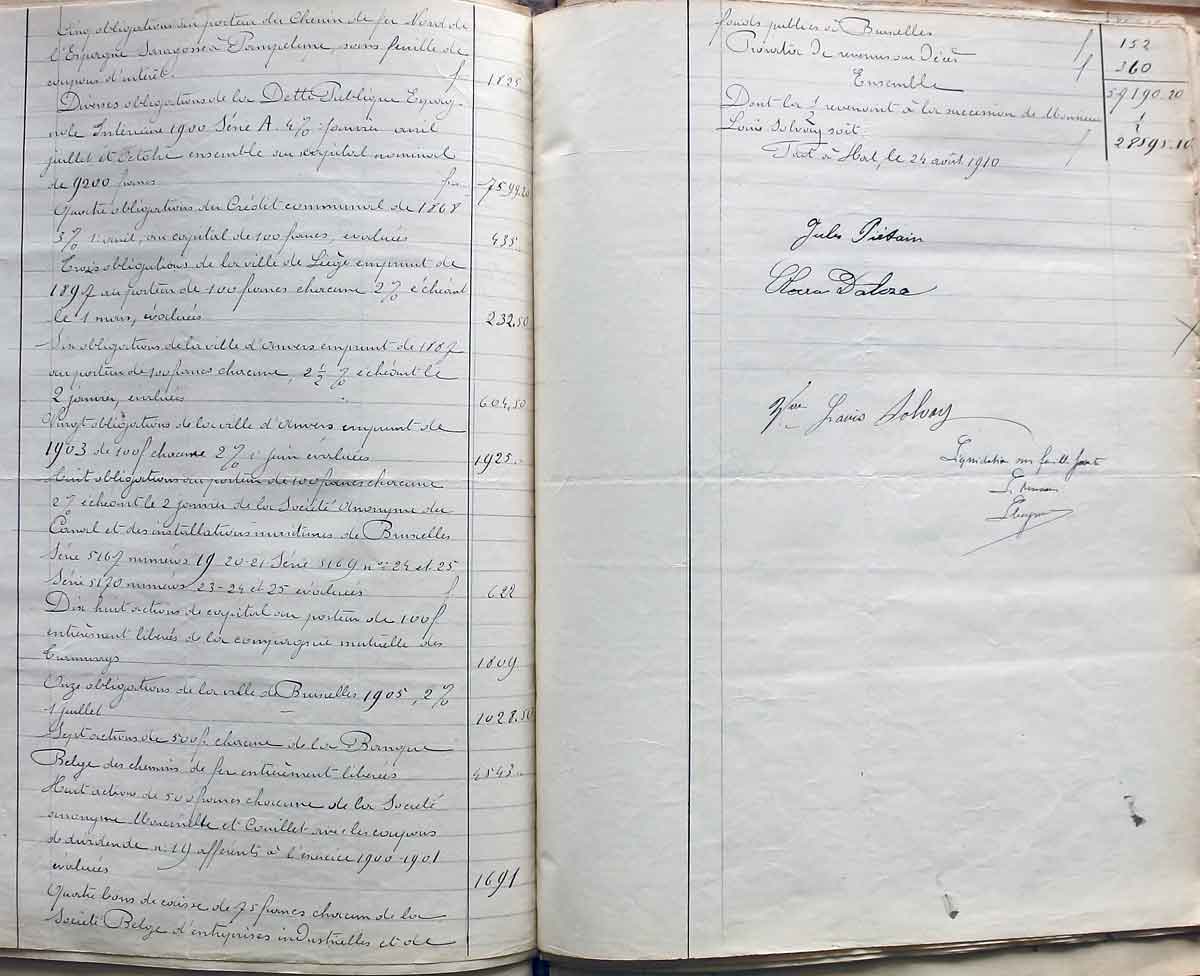 Cinq obligations au porteur du Chemin de fer Nord de
l'Espagne Saragosse à Pampelune, sans feuille de
coupons d'intérêt. f 1825
Diverses obligations de la Dette Publique Espag-
nole Intérieure 1900 Série A. 4% janvier avril
juillet et Octobre ensemble au capital nominal
de 9200 francs 7599.20
Quatre obligations du Crédit communal de 1868
3% 1 avril, au capital de 100 francs, évaluées 435
Trois obligations de la ville de Liège emprunt de
1897 au porteur de 100 francs chacune 2% échéant
le 1 mars, évaluées 232.50
Six obligations de la ville d'Anvers emprunt de 1887
au porteur de 100 francs chacune, 2 1/2 % échéant le
2 janvier, évaluées 604.50
Vingt obligations de la ville d'Anvers emprunt de
1903 de 100 f chacune 2% 1 juin évaluées 1925
Huit obligations au porteur de 100 francs chacune
2% échéant le 2 janvier de la Société Anonyme du
Canal et des installations maritimes de Bruxelles
Série 5167 numéros 19-20-21 Série 5169 nos 24 et 25
Série 5170 numéros 23-24 et 25 évaluées f 622
Dix huit actions de capital au porteur de 100 f
entièrement libérés de la compagnie mutuelle des
Tramways 1809
Onze obligations de la ville de Bruxelles 1905, 2%
1 juillet 1028.50
Sept actions de 500 f. chacune de la Banque
Belge des chemins de fer entièrement libérées 4543
Huit actions de 500 francs chacune de la Société
anonyme Marcinelle et Couillet avec les coupons
de dividende n. 19 afférents à l'exercice 1900-1901
évaluées 1691
Quatre bons de caisse de 75 francs chacun de la
Société Belge d'entreprises industrielles et de
fonds publics à Bruxelles f 152
Prorata de revenus au décès f 360
Ensemble 57190.20
Dont la 1/2 revenant à la succession de Monsieur
Louis Solvay soit. 28595.10
Fait à Hal, le 24 août 1910
Jules Piétain
Clara Daloze
Vve Louis Solvay
Liquidation sur feuille jointe